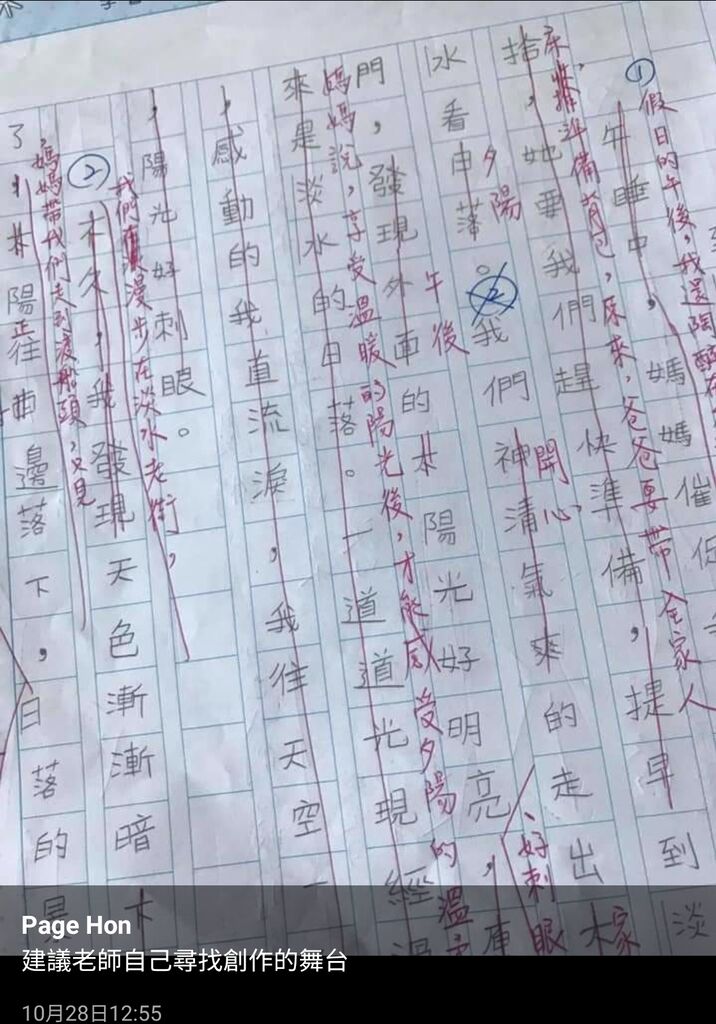 ①假日的午後，我還陶醉在
午睡中，媽媽催促
床，準備背包，原來，爸爸要帶全家人
捨，她要我們趕快準備，提早到淡
夕陽
水看日落。②我們神清氣來的走出大
午後
開心，
、好刺眼
家
門，發現外車的太陽光好明亮，原
媽媽說，享受溫暖的陽光後，才能感受夕陽的溫
來是淡水的日落。一道道光現經過
，感動的我直流淚，我往天空一
，陽光好刺眼。
我們漫步在淡水老街，
②不久，我發現天色漸漸暗下
，媽媽帶我們走到渡船頭，又見
了！太陽正往西邊落下，日落的景
Page Hon
建議老師自己尋找創作的舞台
10月28日12:55